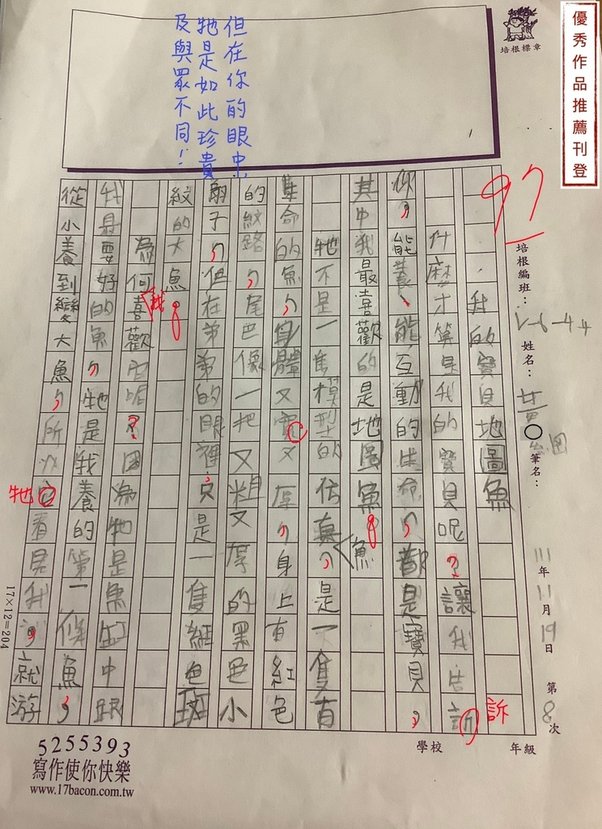 優秀作品推薦刊登
培根標章
但在你的眼中
牠是如此珍貴
及與眾不同!
97
培根編班: i-6-44 姓名: 黃 筆名:
111年11月19日 第8次
學校 年級
我的寶貝地圖魚
什麼才算是我的寶貝呢?讓我告訴
訴
你,能養、能互動的生命,都是寶貝,
其中我最喜歡的是地圖魚。
牠不是一隻模型的仿真魚,是一隻有
生命的魚,身體又寬又厚,身上有紅色
的紋路,尾巴像一把又粗又厚的黑色小
扇子,但在弟弟的眼裡,只是一隻紅色斑
紋的大魚。
為何我喜歡牠呢?因為牠是魚缸中跟
我最要好的魚,牠是我養的第一條魚,
從小養到變大魚,所以牠看見我,就游
17×12=204
5255393
寫作使你快樂
www.17bacon.com.tw